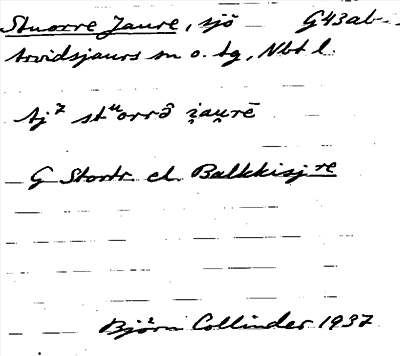 Stuorre Jaure, sjö G43ab
Arvidsjaurs sn o. tg, Nbt l.
tj⁷ stᵘorrȯ̂ i̯au̯rē
G Stortr. el. Balkkisjʳᵉ
Björn Collinder 1937